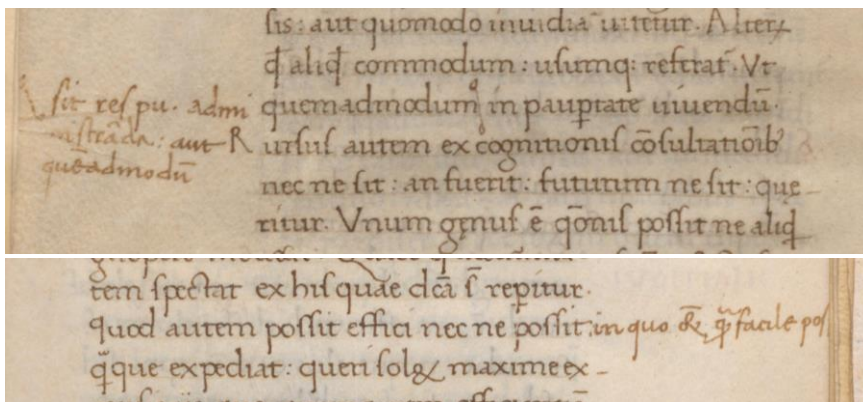 sis: aut quomodo inuidia uitetur. Alterꝝ
qđ aliqđ commodum: usumqꝫ refͤrat. Vt
quemadmodum in paupꝑtate uiuendū.
sit res pu. admi
nistrāda: aut
quēadmodū
Rursus autem ex cognitionis cōsultatiōibꝰ
nec ne sit: an fuerit: futurum ne sit: que-
ritur. Vnum genus ē qōnis possit ne aliqđ
tem spectat ex his quae dc̄a s̄t reperitur.
quod autem possit effici nec ne possit: in quo & quā facile pos
quaque expediat: queri solꝫ maxime ex-